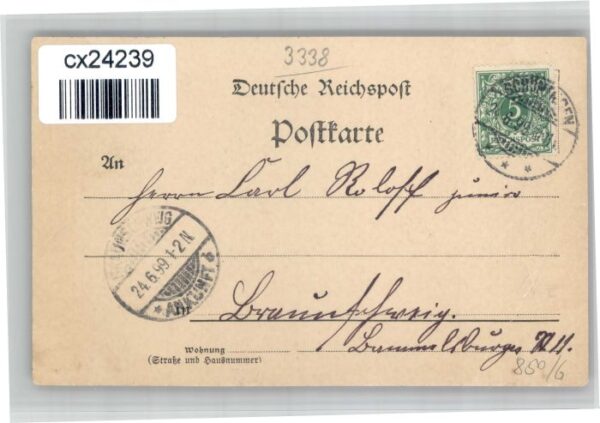 cx24239
3338
Deutsche Reichspost
Postkarte
5
SCHÖNINGEN
An
Herrn Carl Roloff junior
24.6.99.1-2N
* ANKUNFT *
In
Braunschweig.
Wohnung
(Straße und Hausnummer)
850/6